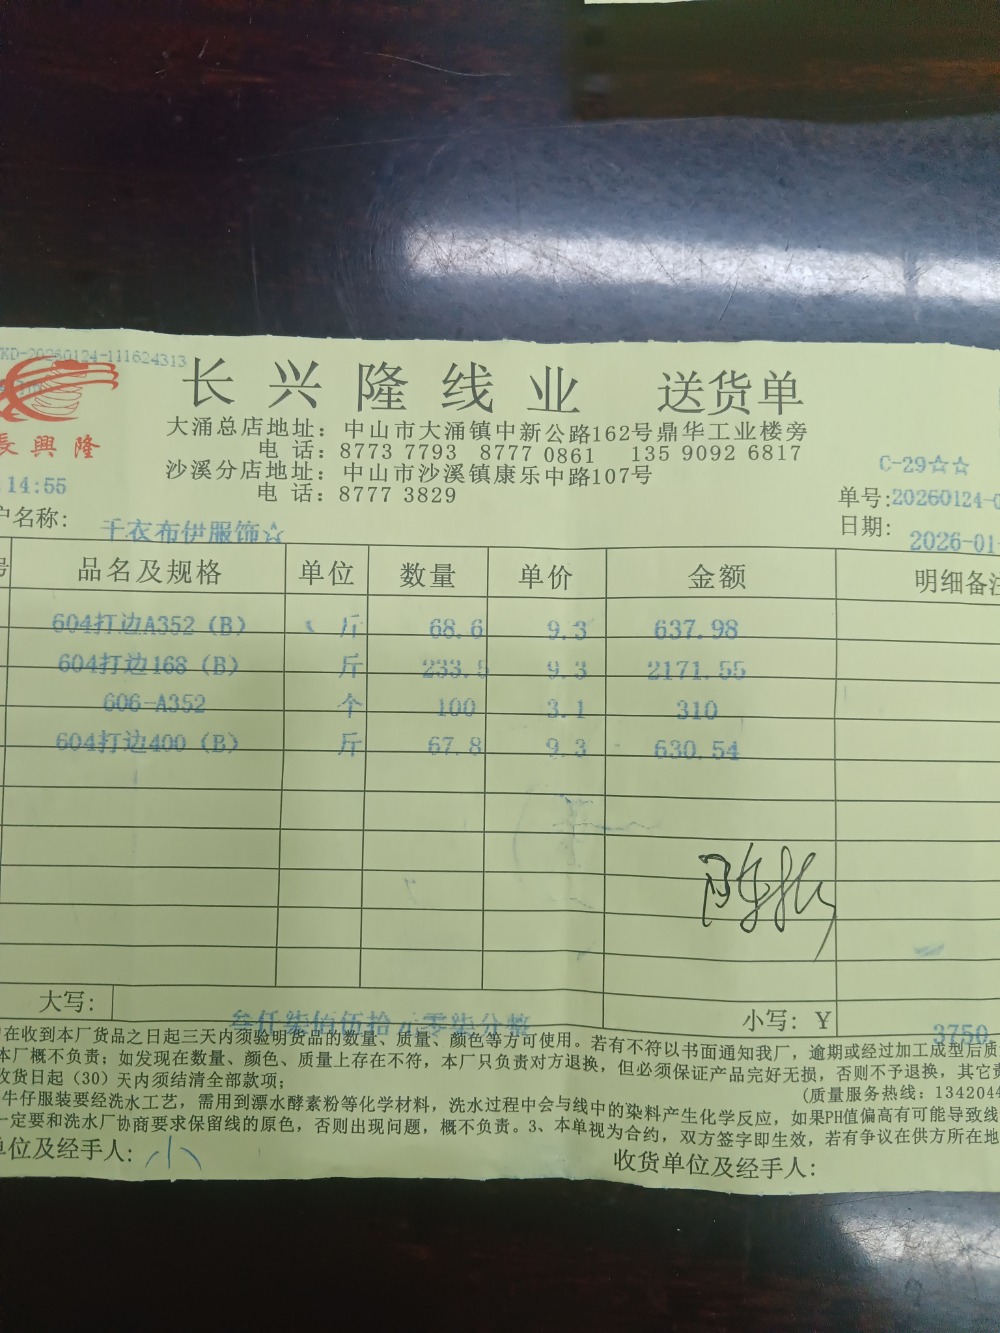 KD-20260124-111624313
长兴隆线业 送货单
長興隆
大涌总店地址：中山市大涌镇中新公路162号鼎华工业楼旁
电 话：8773 7793 8777 0861 135 9092 6817
沙溪分店地址：中山市沙溪镇康乐中路107号
电 话：8777 3829
C-29☆☆
14:55
单号:20260124-0
户名称: 千衣布伊服饰☆
日期: 2026-01-
号 品名及规格 单位 数量 单价 金额 明细备注
604打边A352（B） 斤 68.6 9.3 637.98
604打边168（B） 斤 233.5 9.3 2171.55
606-A352 个 100 3.1 310
604打边400（B） 斤 67.8 9.3 630.54
大写: 叁仟柒佰伍拾元零柒分整 小写: ￥ 3750.
在收到本厂货品之日起三天内须验明货品的数量、质量、颜色等方可使用。若有不符以书面通知我厂，逾期或经过加工成型后质
本厂概不负责；如发现在数量、颜色、质量上存在不符，本厂只负责对方退换，但必须保证产品完好无损，否则不予退换，其它责
收货日起（30）天内须结清全部款项； (质量服务热线：1342044
牛仔服装要经洗水工艺，需用到漂水酵素粉等化学材料，洗水过程中会与线中的染料产生化学反应，如果PH值偏高有可能导致线
一定要和洗水厂协商要求保留线的原色，否则出现问题，概不负责。3、本单视为合约，双方签字即生效，若有争议在供方所在地
单位及经手人: 小 收货单位及经手人: